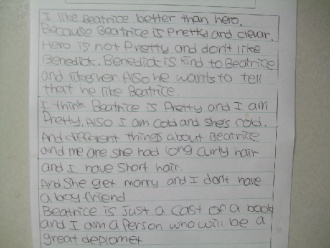 I like Beatrice better than hero.
Because Beatrice is Pretty and clevar.
Hero is not Pretty and dont like
Benedick. Benedick is kind to Beatrice
and likesher Also he wants to tell
that he like Beatrice.
I think Beatrice is Pretty and I am
Pretty. Also I am cold and she's cold.
And different things about Beatrice
and me are she had long curly hair
and I have short hair.
And She get marry and I don't have
a boy friend
Beatrice is Just a cast of a book
and I am a person who will be a
great deplomer